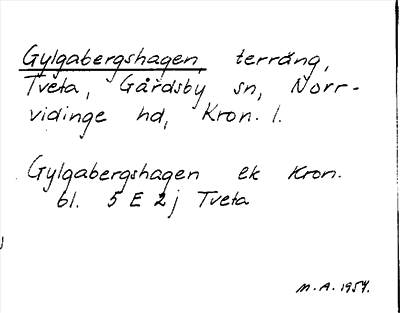 Gylgabergshagen, terräng,
Tveta, Gårdsby sn, Norr-
vidinge hd, Kron. l.
Gylgabergshagen ek Kron.
bl. 5 E 2j Tveta
M.A. 1954.